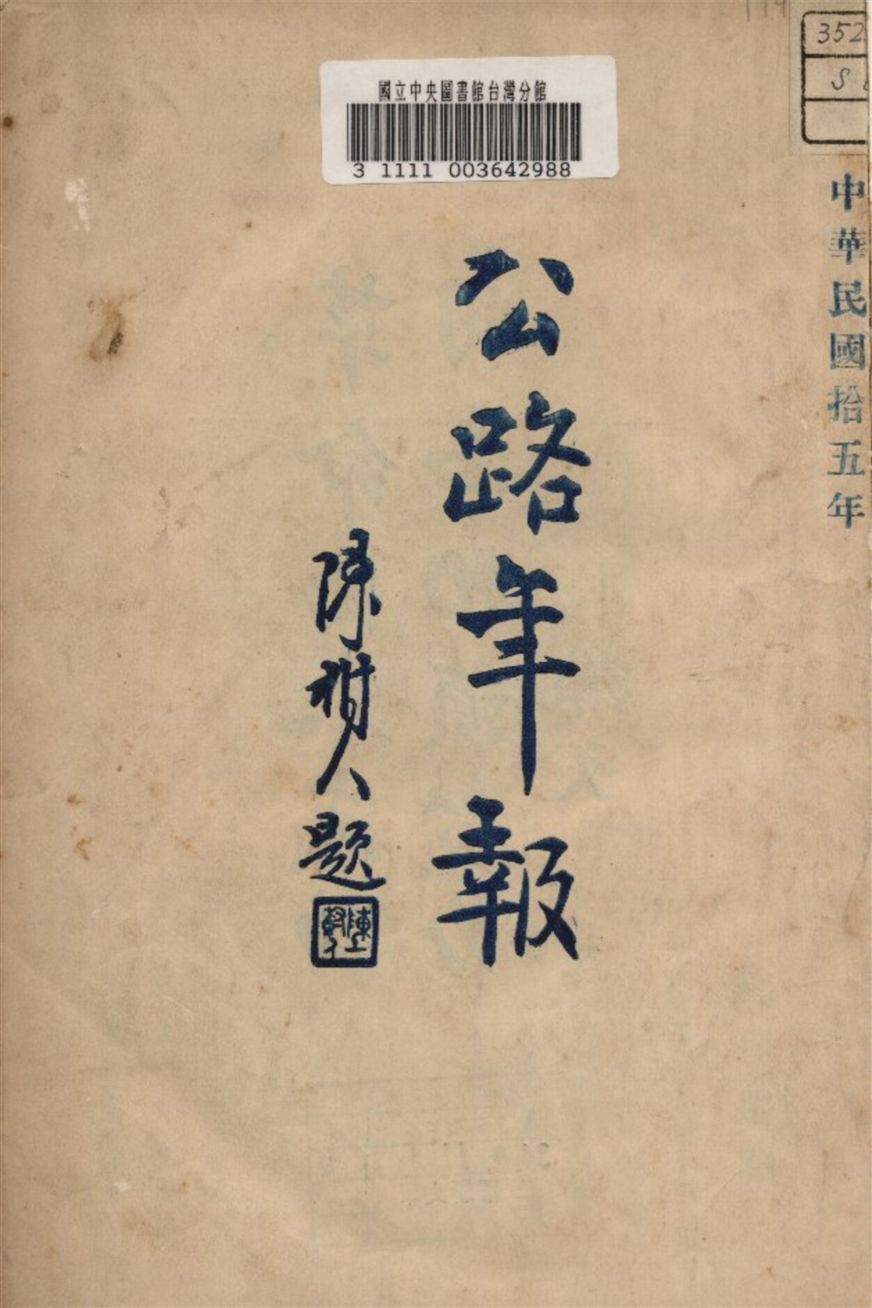 國立中央圖書館台灣分館
3 1111 003642988
352
S
中華民國拾五年
公路年報
陳樹人題